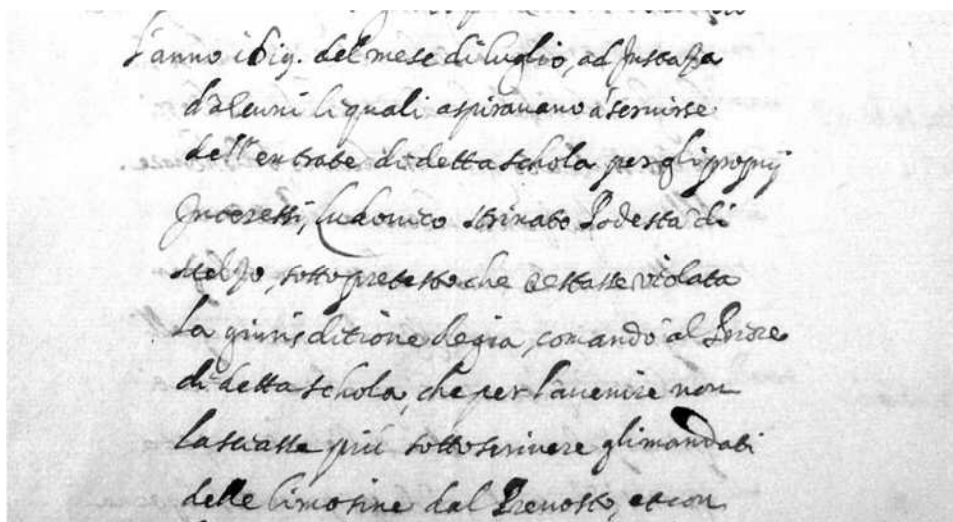 l'anno 1619. del mese di luglio, ad Instaza
d'alcuni li quali aspiravano a servirse
dell'entrate di detta schola per gli proprij
Interessi, Ludovico Strinato Podestà di
Melzo, sotto pretesto che restasse violata
la giurisditione Regia, comandò al Priore
di detta schola, che per l'avenire non
lasciasse più sottoscrivere gli mandati
delle limosine dal Prevosto, et con